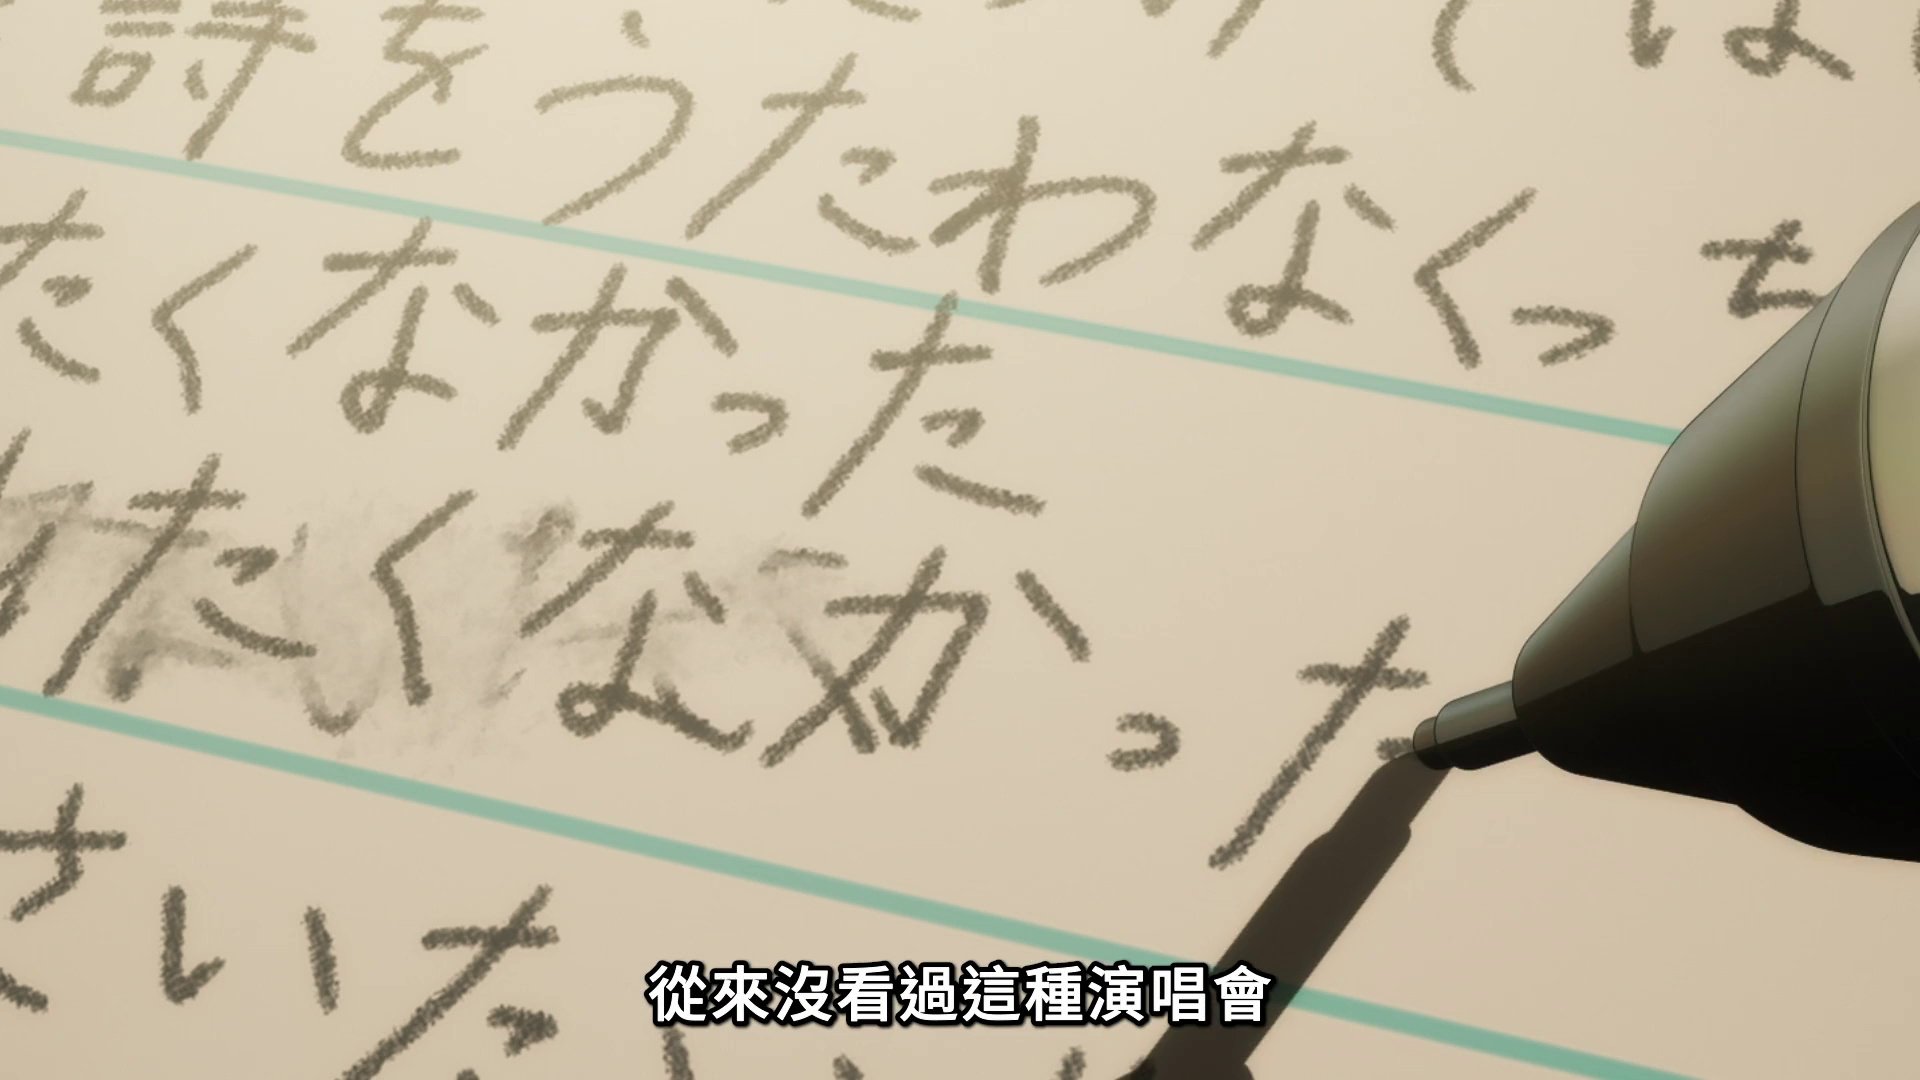 詩をうたわなくっち
たくなかった
たくなかった
さいた
從來沒看過這種演唱會